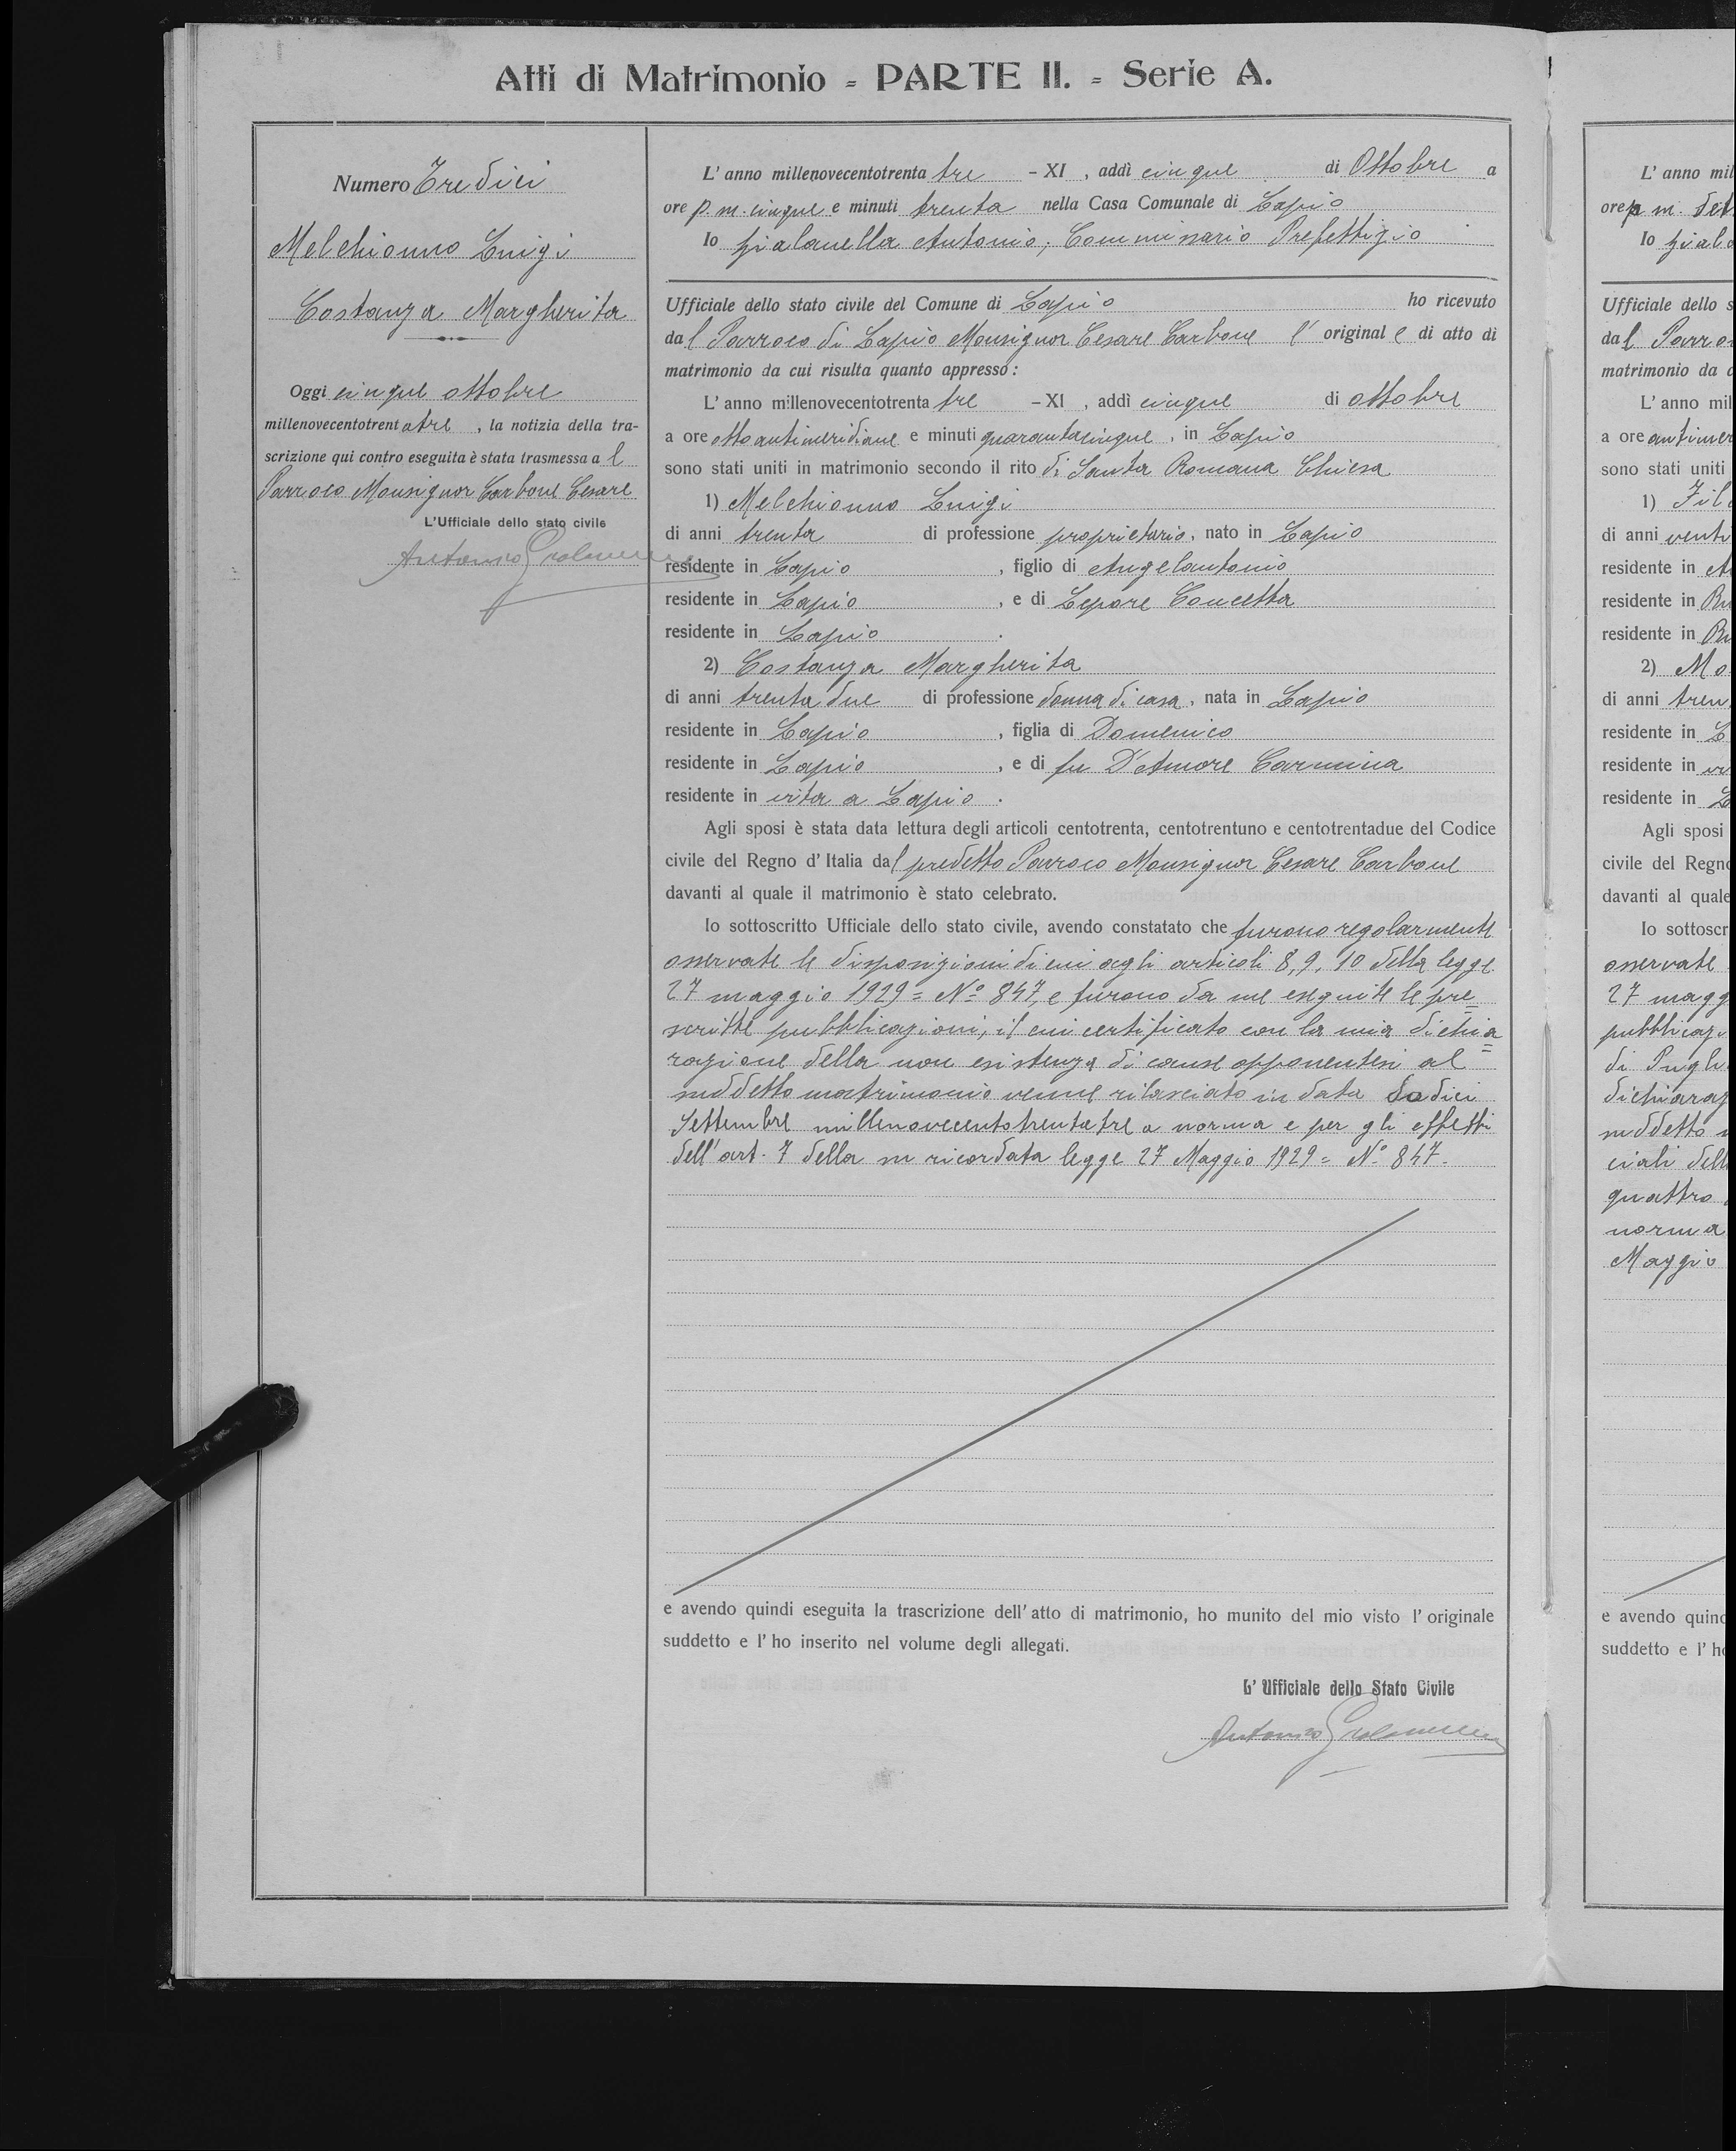 Atti di Matrimonio = PARTE II. = Serie A.
Numero Tredici
Melchionno Luigi
Costanza Margherita
Oggi cinque ottobre
millenovecentotrentatre, la notizia della tra-
scrizione qui contro eseguita è stata trasmessa al
Parroco Monsignor Carbone Cesare
L'Ufficiale dello stato civile
Antonio
L'anno millenovecentotrenta tre - XI, addì cinque di Ottobre a
ore p.m. cinque e minuti trenta nella Casa Comunale di Lapio
Io Gialanella Antonio, Commissario Prefettizio
Ufficiale dello stato civile del Comune di Lapio ho ricevuto
dal Parroco di Lapio Monsignor Cesare Carbone l'originale di atto di
matrimonio da cui risulta quanto appresso:
L'anno millenovecentotrenta tre - XI, addì cinque di ottobre
a ore otto antimeridiane e minuti quarantacinque, in Lapio
sono stati uniti in matrimonio secondo il rito di Santa Romana Chiesa
1) Melchionno Luigi
di anni trenta di professione proprietario, nato in Lapio
residente in Lapio, figlio di Angelantonio
residente in Lapio, e di Lepore Concetta
residente in Lapio.
2) Costanza Margherita
di anni trentadue di professione donna di casa, nata in Lapio
residente in Lapio, figlia di Domenico
residente in Lapio, e di fu D'Amore Carmina
residente in vita a Lapio.
Agli sposi è stata data lettura degli articoli centotrenta, centotrentuno e centotrentadue del Codice
civile del Regno d'Italia dal predetto Parroco Monsignor Cesare Carbone
davanti al quale il matrimonio è stato celebrato.
Io sottoscritto Ufficiale dello stato civile, avendo constatato che furono regolarmente
osservate le disposizioni di cui agli articoli 8, 9, 10 della legge
27 maggio 1929 = Nº 847, e furono da me eseguite le pre=
scritte pubblicazioni, il cui certificato con la mia dichia=
razione della non esistenza di cause opponentesi al
suddetto matrimonio venne rilasciato in data dodici
Settembre millenovecentotrentatre a norma e per gli effetti
dell'art. 7 della su ricordata legge 27 Maggio 1929 = Nº 847.
e avendo quindi eseguita la trascrizione dell'atto di matrimonio, ho munito del mio visto l'originale
suddetto e l'ho inserito nel volume degli allegati.
L'Ufficiale dello Stato Civile
Antonio
L'anno mil
ore p m.
Io
Ufficiale dello s
dal Parro
matrimonio da c
L'anno mil
a ore antimer
sono stati uniti
1)
di anni venti
residente in
residente in
residente in
2) Mo
di anni tren
residente in L
residente in
residente in L
Agli sposi
civile del Regno
davanti al quale
Io sottoscr
osservate
27 magg
pubblicazi
di Pugli
dichiaraz
suddetto
ciali dell
quattro
norma
Maggio
e avendo quind
suddetto e l'ho